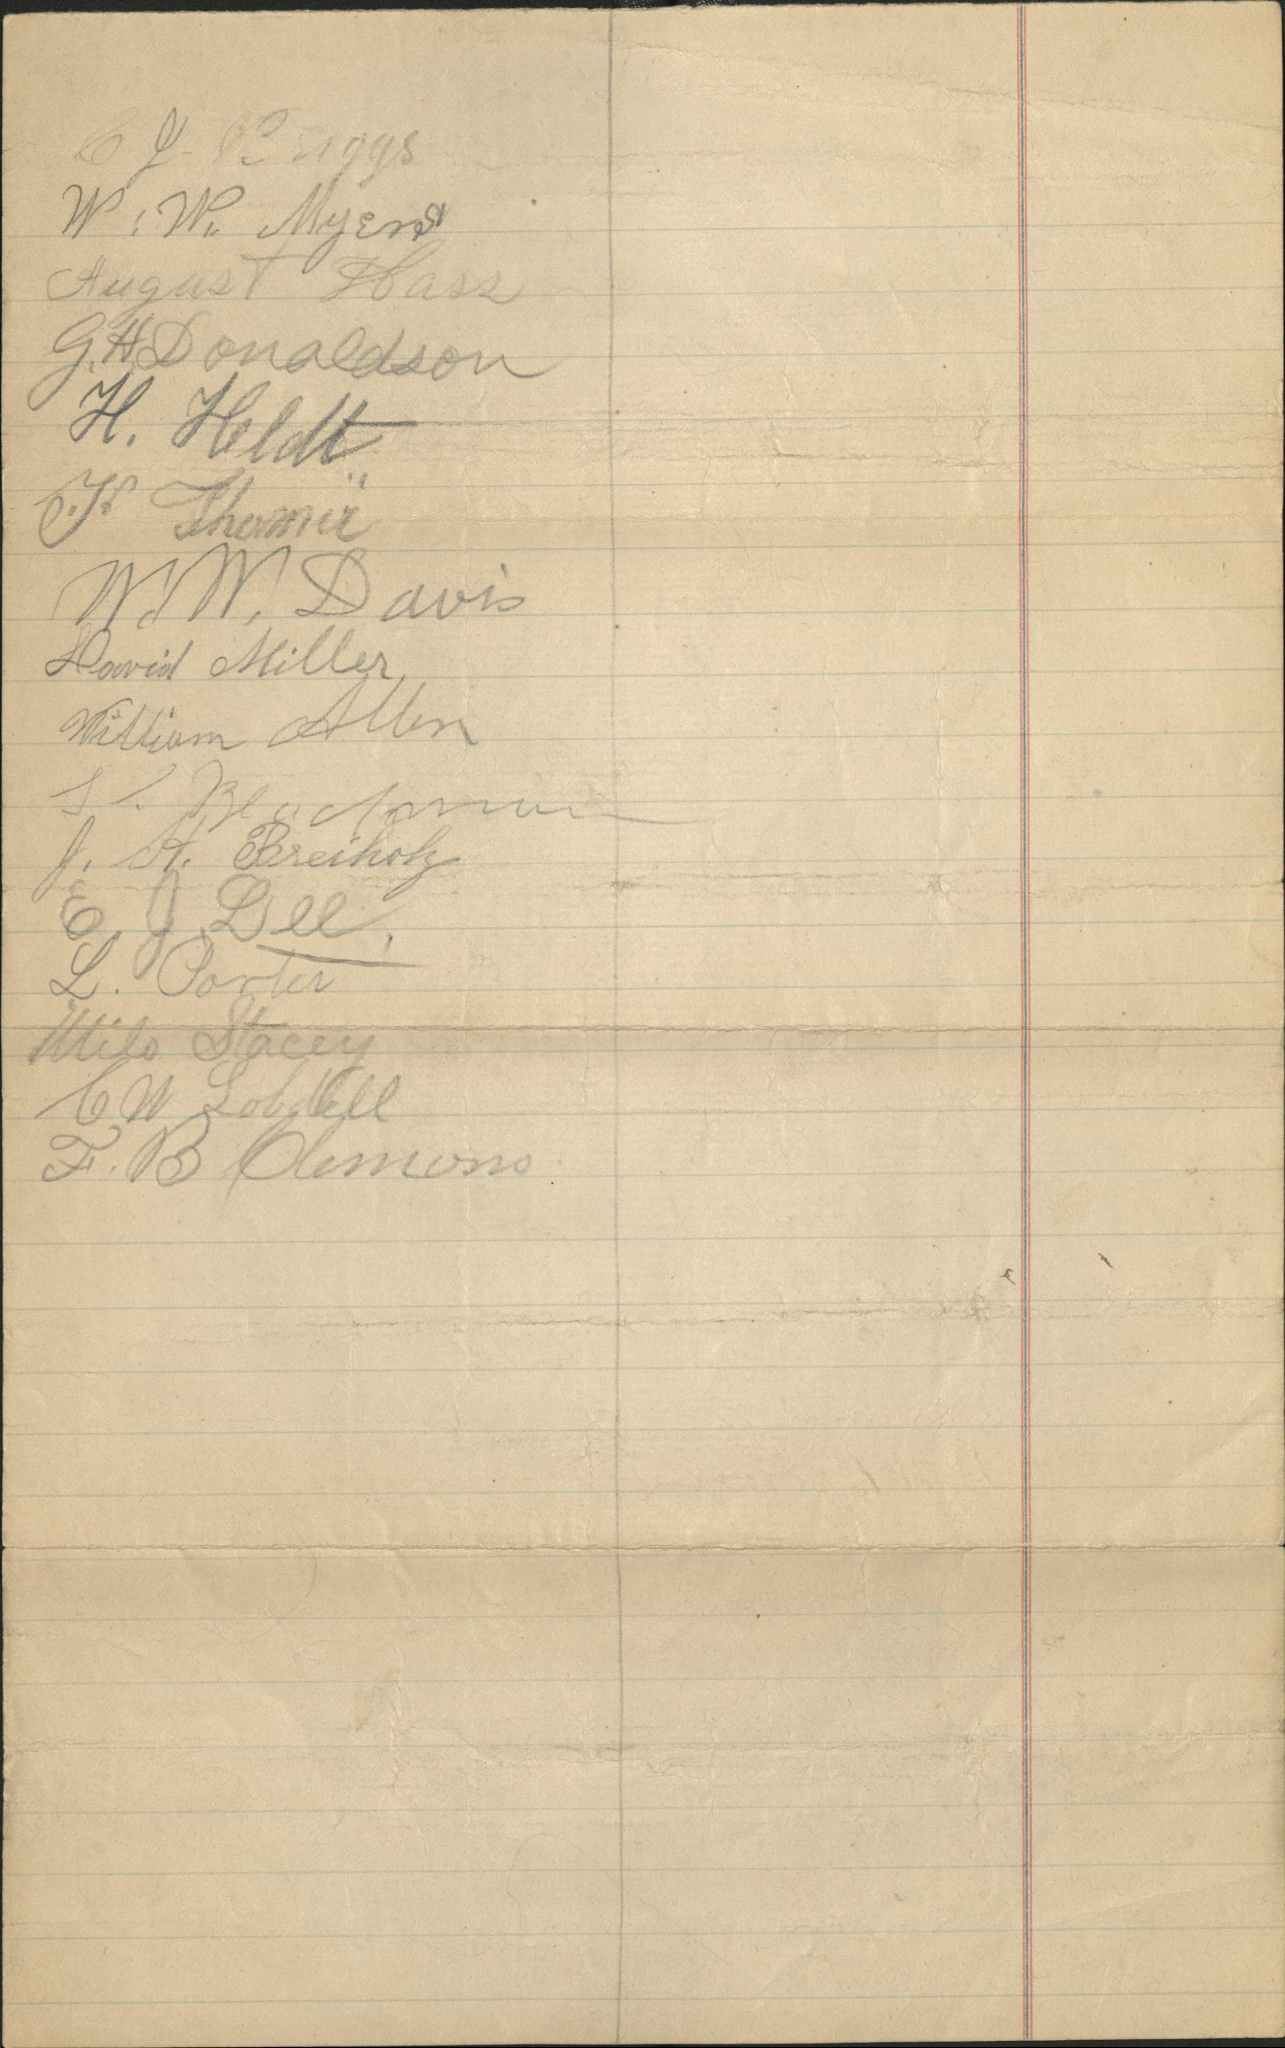 C J Briggs
W. W. Myers
August Hass
G. H. Donaldson
H. Heldt
W. W. Davis
David Miller
William Allen
J. H. Breiholz
E. J. Dee.
L. Porter
Milo Stacey
C W Lobdell
F. B Clemons